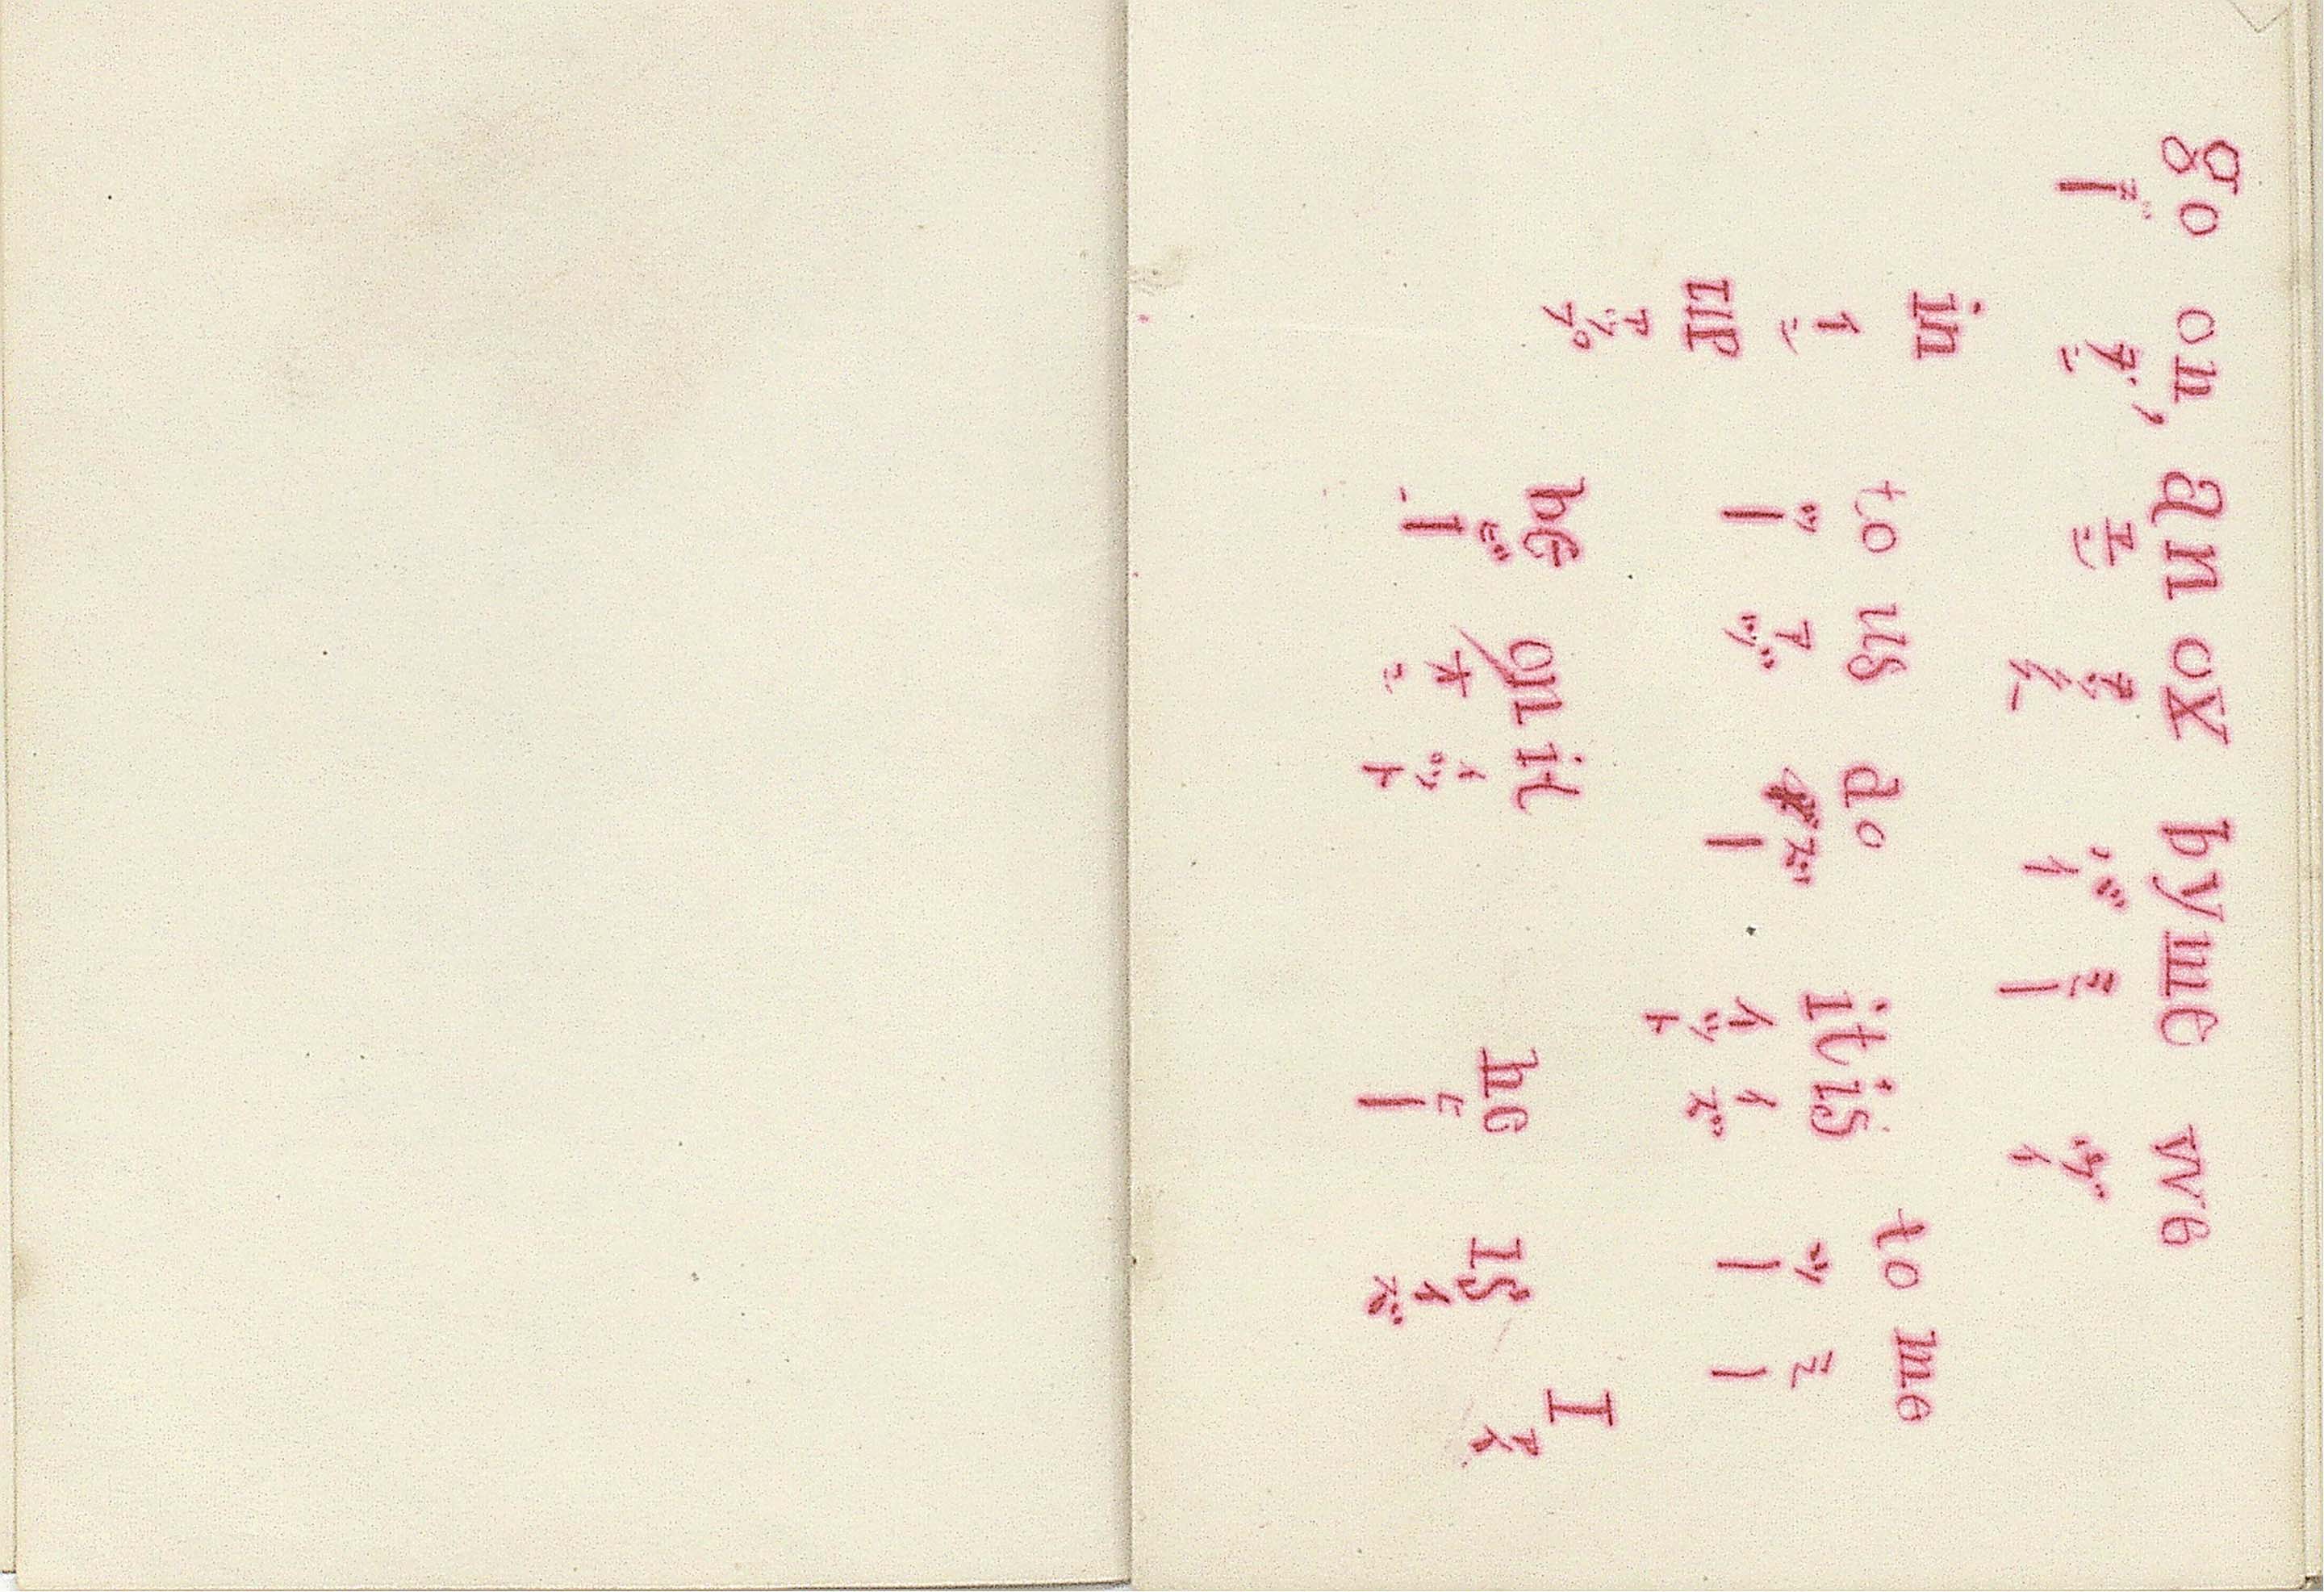 go on, an ox by me we
ゴー オン エン バイ ミー
in to us do it is to me
イン ツー ツー イツト イズ ミー
up be on it he is I
アツプ ビー オン イツト ヒー イズ アイ